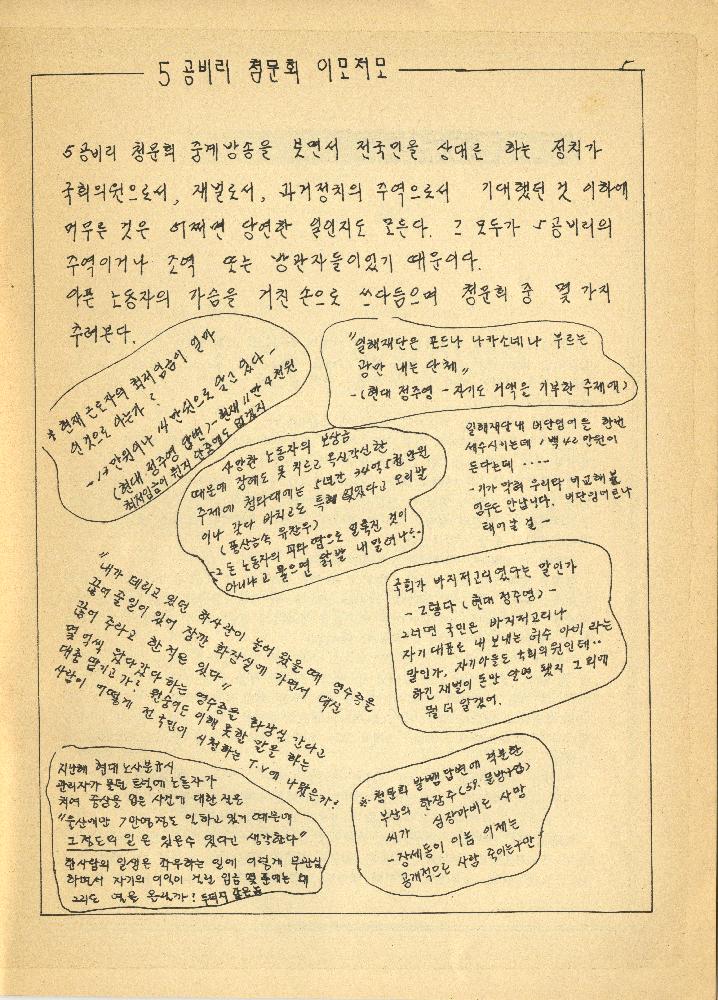 5 공비리 청문회 이모저모
5
5공비리 청문회 중계방송을 보면서 전국민을 상대로 하는 정치가
국회의원으로서, 재벌로서, 과거정치의 주역으로서 기대했던 것 이하에
머무른 것은 어쩌면 당연한 일인지도 모른다. 그 모두가 5공비리의
주역이거나 조역 또는 방관자들이었기 때문이다.
아픈 노동자의 가슴을 거친 손으로 쓰다듬으며 청문회 중 몇 가지
추려본다.
* 현재 근로자의 최저임금이 얼마
인 것으로 아는가?
- 13만원이나 14만원으로 알고 있다 -
(현대 정주영 답변) - 현재 11만 4천원
최저임금이 뭔지
"일해재단은 폰드나 나카소네나 부르는
광만 내는 단체"
- (현대 정주영 - 자기도 거액을 기부한 주제에)
사망한 노동자의 보상금
때문에 잠에도 못 치르고 옥신각신한
주제에 청와대에는 5년간 34억 5천만원
이나 갖다 바치고도 특혜 없었다고 오리발
(풍산금속 유찬우)
- 그 돈 노동자의 피와 땀으로 얼룩진 것이
아니냐고 물으면 닭발 내밀려나..
일해재단내 버단잉어를 한번
세수시키는데 1백 42만원이
든다는데 ....
- 기가 막혀 우리와 비교해볼
엄두도 안납니다. 버단잉어로나
태어날 걸 -
"내가 데리고 있던 하사관이 놀러 왔을때 영수증을
끊어 줄 일이 있어 잠깐 화장실에 가면서 대신
끊어 주라고 한 적은 있다"
몇 억씩 왔다갔다 하는 영수증을 화장실 간다고
대충 맡기고 가? 원숭이도 이해 못할 말을 하는
사람이 어떻게 전국민이 시청하는 T.V에 나왔는가?
국회가 바지저고리였다는 말인가
- 그렇다 (현대 정주영) -
그러면 국민은 바지저고리나
자기 대표로 내 보내는 허수아비라는
말인가, 자기아들도 국회의원인데..
하긴 재벌이 돈만 알면 됐지 그 외에
뭘 더 알겠어.
지난해 현대 노사분규시
관리자가 몰던 트럭에 노동자가
치여 중상을 입은 사건에 대한 질문
"울산에만 7만여명도 일하고 있기 때문에
그정도의 일은 있을수 있다고 생각한다"
한사람의 일생을 좌우하는 일에 이렇게 무관심
하면서 자기의 이익이 걸린 임금 몇 푼에는 왜
그리도 열을 올릴까?
* 청문회 발뺌답변에 격분한
부산의 한장주(59, 문방구업)
씨가 심장마비로 사망
- 장세동이 이놈 이제는
공개적으로 사람 죽이는구만 -